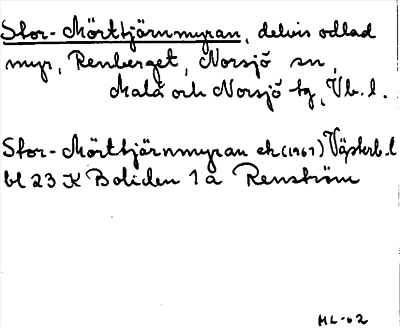 Stor-Mörttjärnmyran, delvis odlad
myr, Renberget, Norsjö sn,
Malå och Norsjö tg, Vb.l.
Stor-Mörttjärnmyran ek (1967) Västerb.l
bl 23 K Boliden 1 a Renström
ML-02